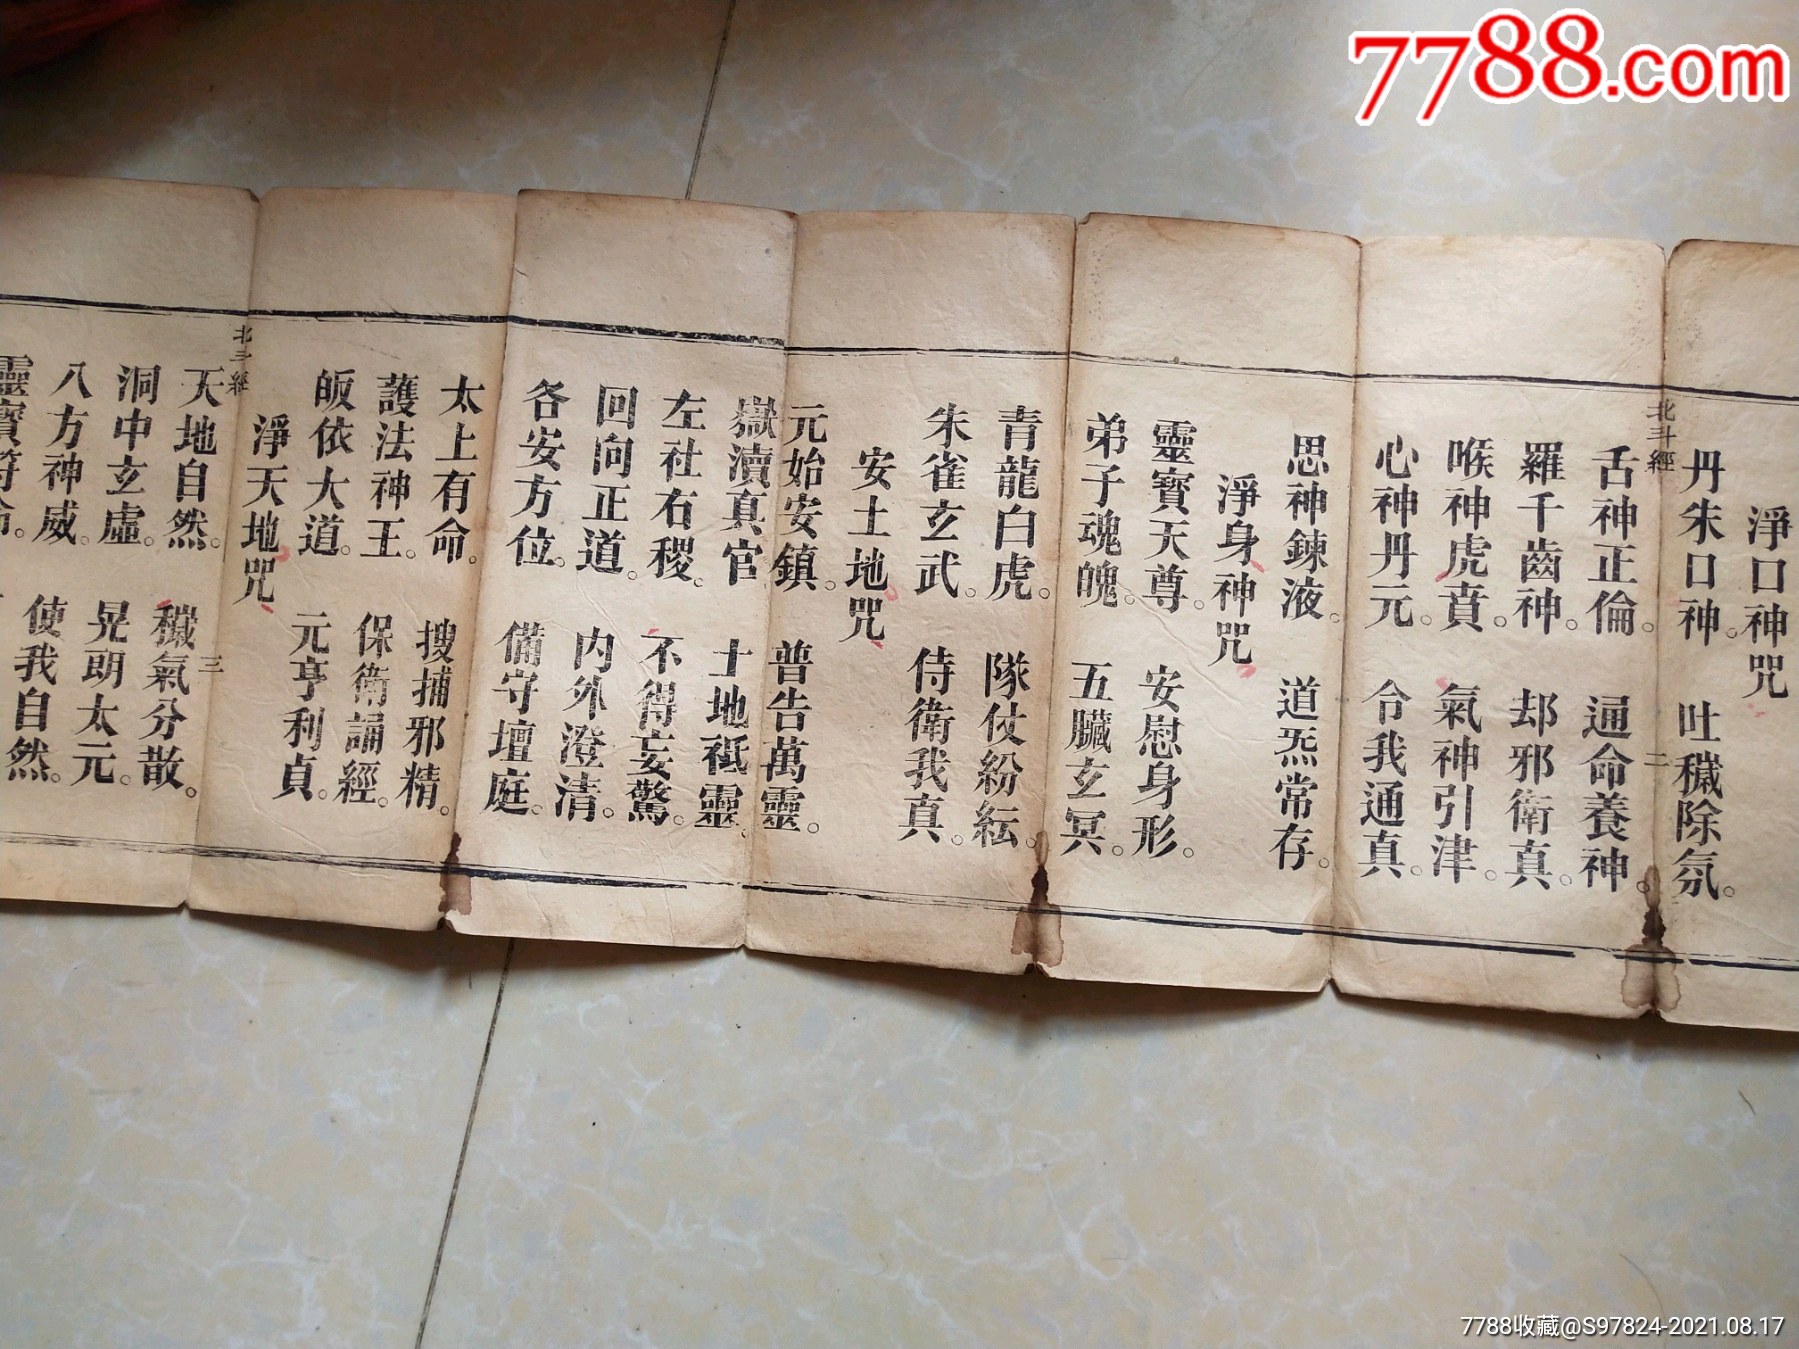 7788.com
淨口神咒
丹朱口神。 吐穢除氛。
北斗經 二
舌神正倫。 通命養神。
羅千齒神。 却邪衛真。
喉神虎賁 氣神引津。
心神丹元。 令我通真。
思神鍊液。 道炁常存。
淨身神咒
靈寶天尊。 安慰身形。
弟子魂魄。 五臟玄冥。
青龍白虎。 隊仗紛紜。
朱雀玄武。 侍衛我真。
安土地咒
元始安鎮。 普告萬靈。
嶽瀆真官 土地祇靈。
左社右稷。 不得妄驚。
回向正道。 內外澄清。
各安方位。 備守壇庭。
太上有命。 搜捕邪精。
護法神王。 保衛誦經。
皈依大道。 元亨利貞。
淨天地咒
北斗經 三
天地自然。 穢氣分散。
洞中玄虛。 晃朗太元。
八方神威。 使我自然。
靈寶符命。
7788收藏@S97824-2021.08.17